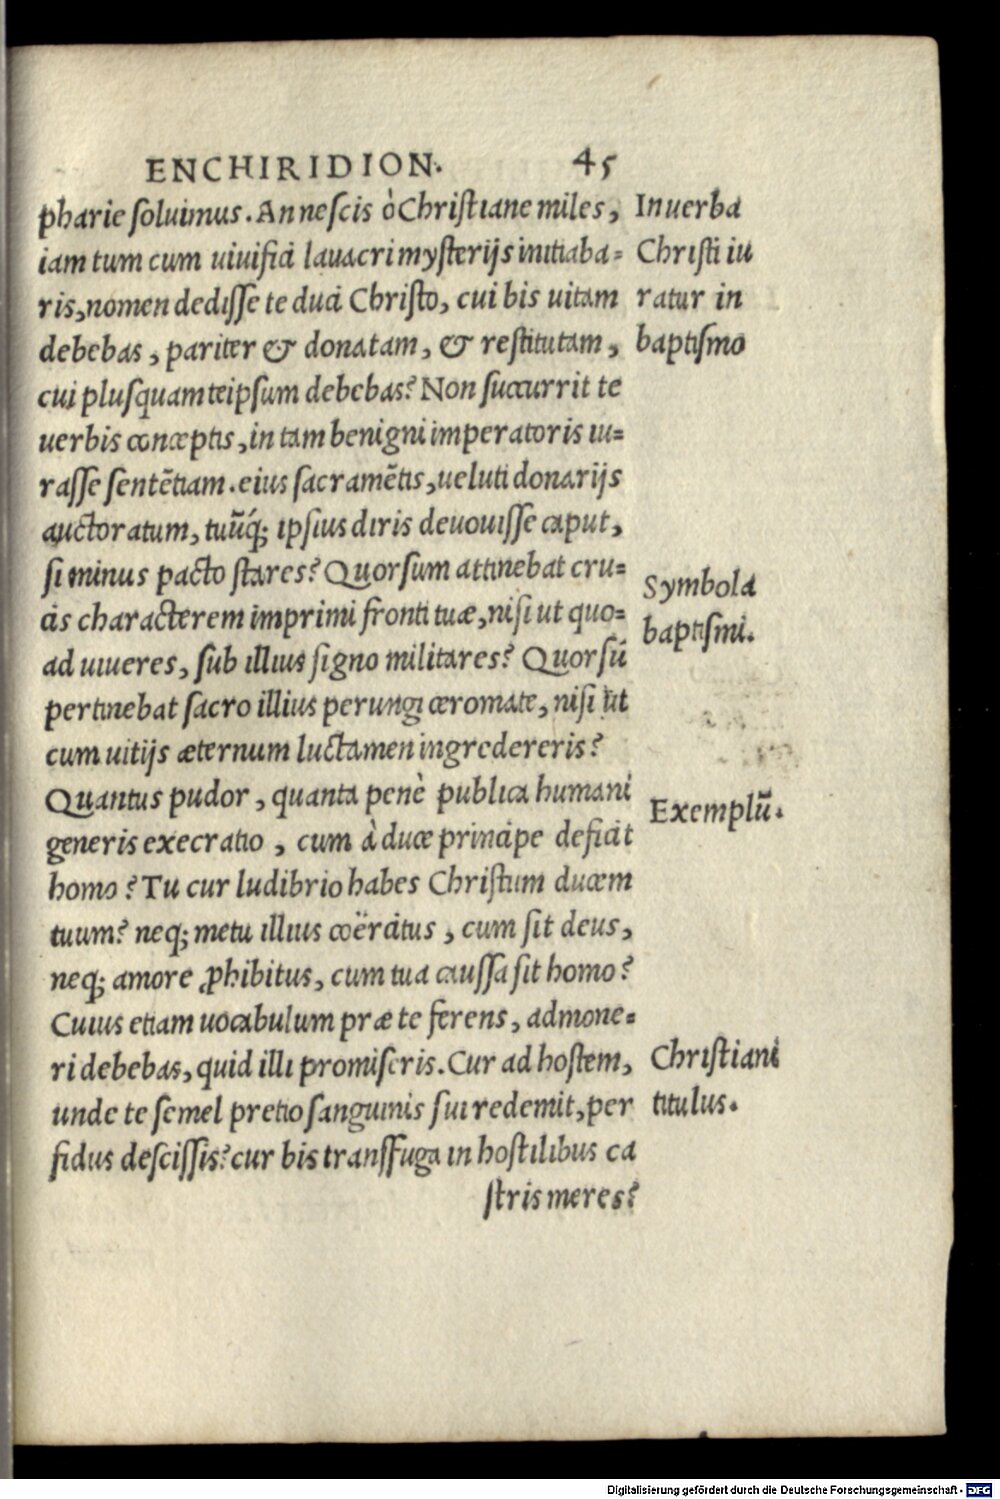 ENCHIRIDION. 45
pharie soluimus. An nescis ò Christiane miles,
iam tum cum uiuifici lauacri mysterijs initiaba=
ris, nomen dedisse te duci Christo, cui bis uitam
debebas, pariter & donatam, & restitutam,
cui plusquam teipsum debebas? Non succurrit te
uerbis conceptis, in tam benigni imperatoris iu=
rasse sentẽtiam. eius sacramẽtis, ueluti donarijs
auctoratum, tuũq; ipsius diris deuouisse caput,
si minus pacto stares? Quorsum attinebat cru=
cis characterem imprimi fronti tuæ, nisi ut quo=
ad uiueres, sub illius signo militares? Quorsũ
pertinebat sacro illius perungi ceromate, nisi ut
cum uitijs æternum luctamen ingredereris?
Quantus pudor, quanta penè publica humani
generis execratio, cum à duce principe deficit
homo? Tu cur ludibrio habes Christum ducem
tuum? neq; metu illius coërcitus, cum sit deus,
neq; amore ꝓhibitus, cum tua caussa sit homo?
Cuius etiam uocabulum præ te ferens, admone=
ri debebas, quid illi promiseris. Cur ad hostem,
unde te semel pretio sanguinis sui redemit, per
fidus descissis? cur bis transfuga in hostilibus ca
stris meres?
In uerba
Christi iu
ratur in
baptismo
Symbola
baptismi.
Exemplũ.
Christiani
titulus.
Digitalisierung gefördert durch die Deutsche Forschungsgemeinschaft - DFG